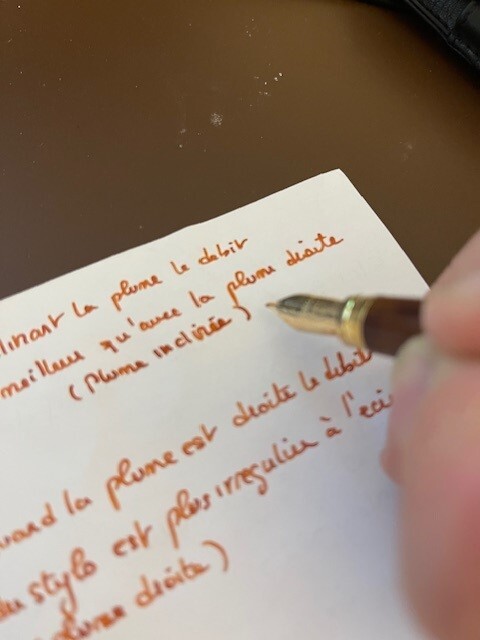 la plume le debit
meilleur qu'avec la plume droite
(plume inclinée)
quand la plume est droite le debit
du stylo est plus irregulier à l'
plume droite)